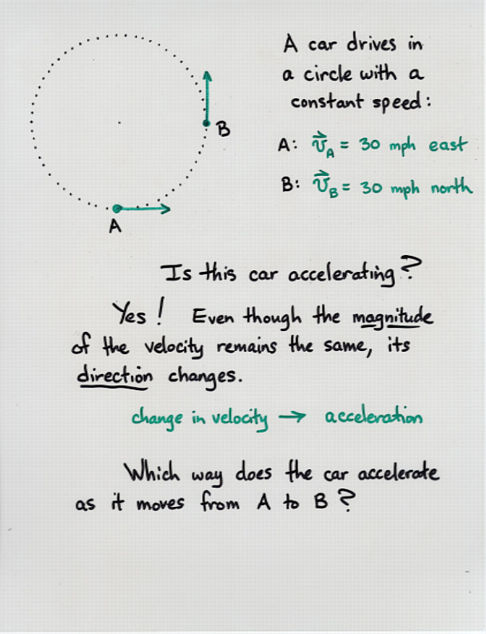 A car drives in
a circle with a
constant speed:
A: v⃗A = 30 mph east
B: v⃗B = 30 mph north
B
A
Is this car accelerating?
Yes! Even though the magnitude
of the velocity remains the same, its
direction changes.
change in velocity → acceleration
Which way does the car accelerate
as it moves from A to B?